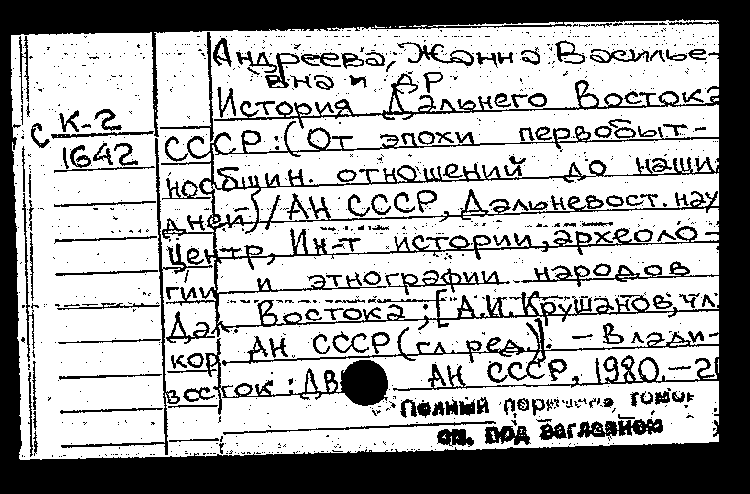 Андреева, Жанна Василье-
вна и др
История Дальнего Востока
С К-2
1642
СССР: (От эпохи первобыт-
нообщин. отношений до наши
дней) / АН СССР, Дальневост. нау
центр, Ин-т истории, археоло-
гии и этнографии народов
Дал. Востока; [А.И. Крушанов, чл.
кор. АН СССР (гл. ред.)]. – Влади-
восток: ДВ АН СССР, 1980. – 2
Полный перечень томов
см. под заглавием